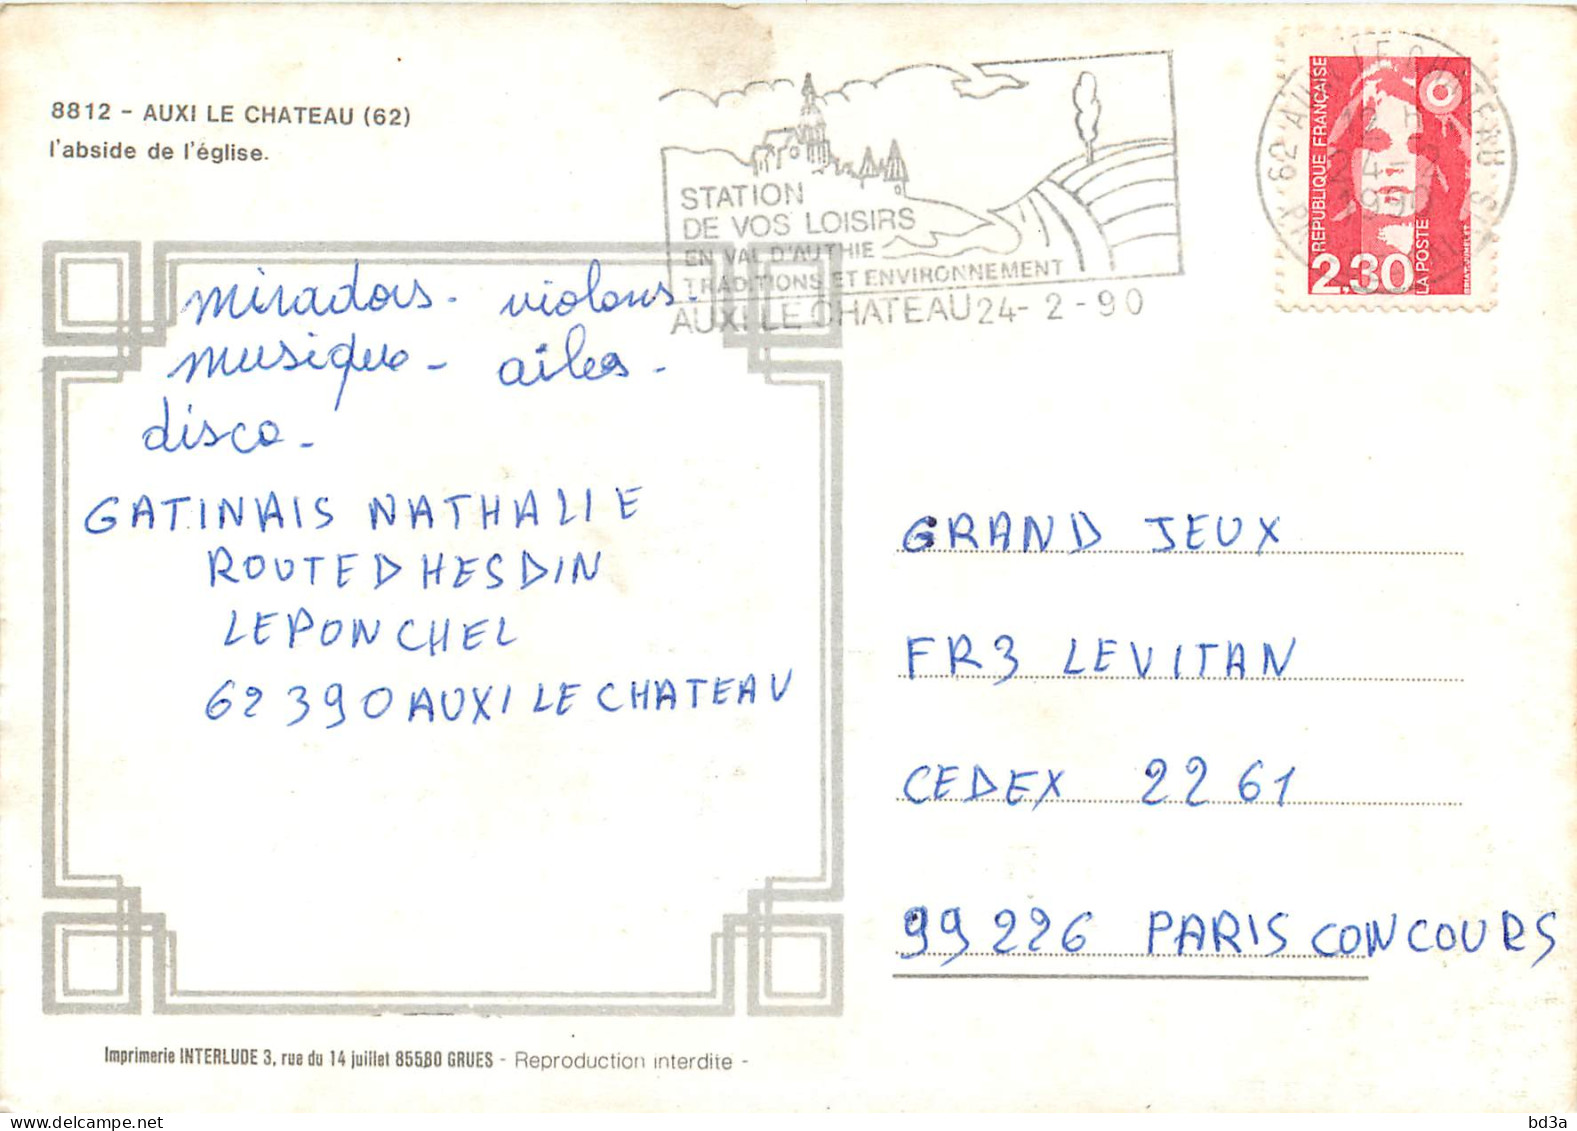 8812 - AUXI LE CHATEAU (62)
l'abside de l'église.
STATION
DE VOS LOISIRS
EN VAL D'AUTHIE
TRADITIONS ET ENVIRONNEMENT
AUXI LE CHATEAU 24-2-90
62 AUXI LE CHATEAU
12 H
24-2
1990
REPUBLIQUE FRANÇAISE
2.30
LA POSTE
miradors - violons -
musique - ailes -
disco -
GATINAIS NATHALIE
ROUTE D HESDIN
LEPONCHEL
62390 AUXI LE CHATEAU
GRAND JEUX
FR3 LEVITAN
CEDEX 2261
99226 PARIS CONCOURS
Imprimerie INTERLUDE 3, rue du 14 juillet 85580 GRUES - Reproduction interdite -
delcampe.net
bd3a